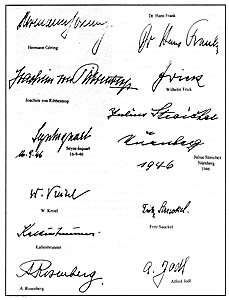 Hermann Göring
Hermann Göring
Dr Hans Frank
Dr. Hans Frank
Joachim von Ribbentrop
Joachim von Ribbentrop
Frick
Wilhelm Frick
Seyss-Inquart
16.9.46
Seyss-Inquart
16-9-46
Julius Streicher
Nürnberg
1946
Julius Streicher
Nürnberg
1946
W. Keitel
W. Keitel
Fritz Sauckel
Fritz Sauckel
Kaltenbrunner
Kaltenbrunner
A Rosenberg
A. Rosenberg
A. Jodl
Alfred Jodl